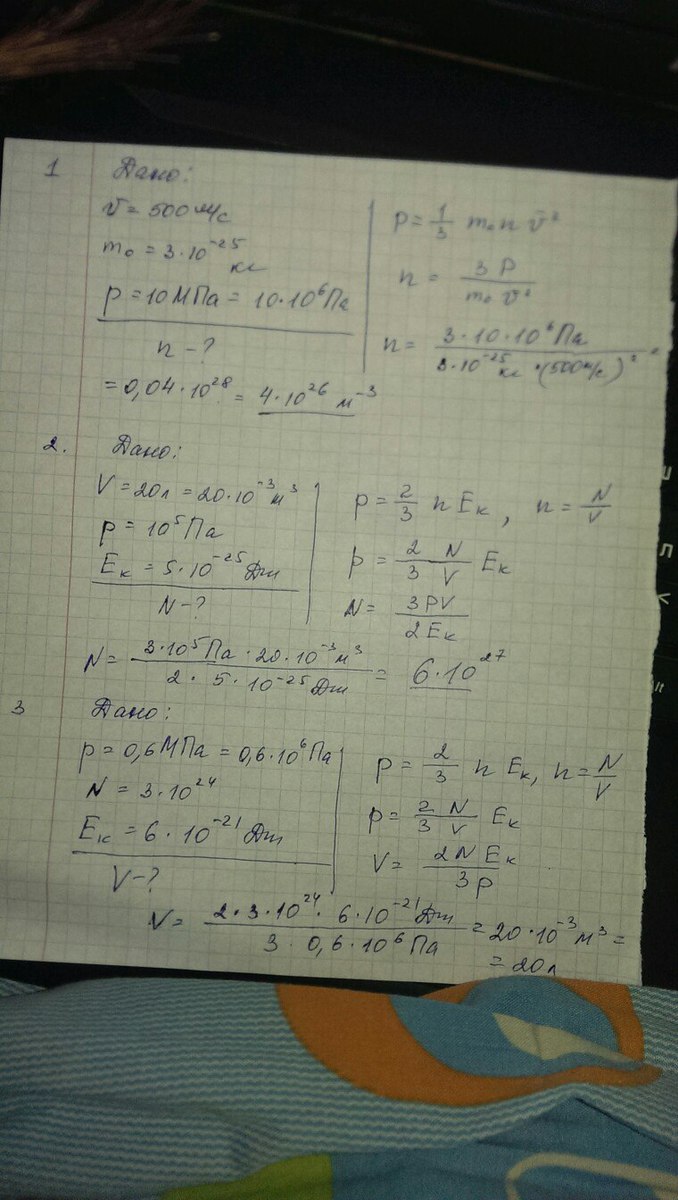 1 Дано:
v̄ = 500 м/с
m₀ = 3·10⁻²⁵ кг
p = 10 МПа = 10·10⁶ Па
n - ?
p = 1/3 m₀ n v̄²
n = 3P / m₀ v̄²
n = 3·10·10⁶ Па / 3·10⁻²⁵ кг · (500 м/с)² =
= 0,04·10²⁸ = 4·10²⁶ м⁻³
2. Дано:
V = 20 л = 20·10⁻³ м³
p = 10⁵ Па
Eк = 5·10⁻²⁵ Дж
N - ?
p = 2/3 n Eк, n = N/V
p = 2/3 N/V Eк
N = 3PV / 2Eк
N = 3·10⁵ Па · 20·10⁻³ м³ / 2 · 5·10⁻²⁵ Дж = 6·10²⁷
3 Дано:
p = 0,6 МПа = 0,6·10⁶ Па
N = 3·10²⁴
Eк = 6·10⁻²¹ Дж
V - ?
p = 2/3 n Eк, n = N/V
p = 2/3 N/V Eк
V = 2NEк / 3p
V = 2·3·10²⁴ · 6·10⁻²¹ Дж / 3 · 0,6·10⁶ Па = 20·10⁻³ м³ =
= 20 л